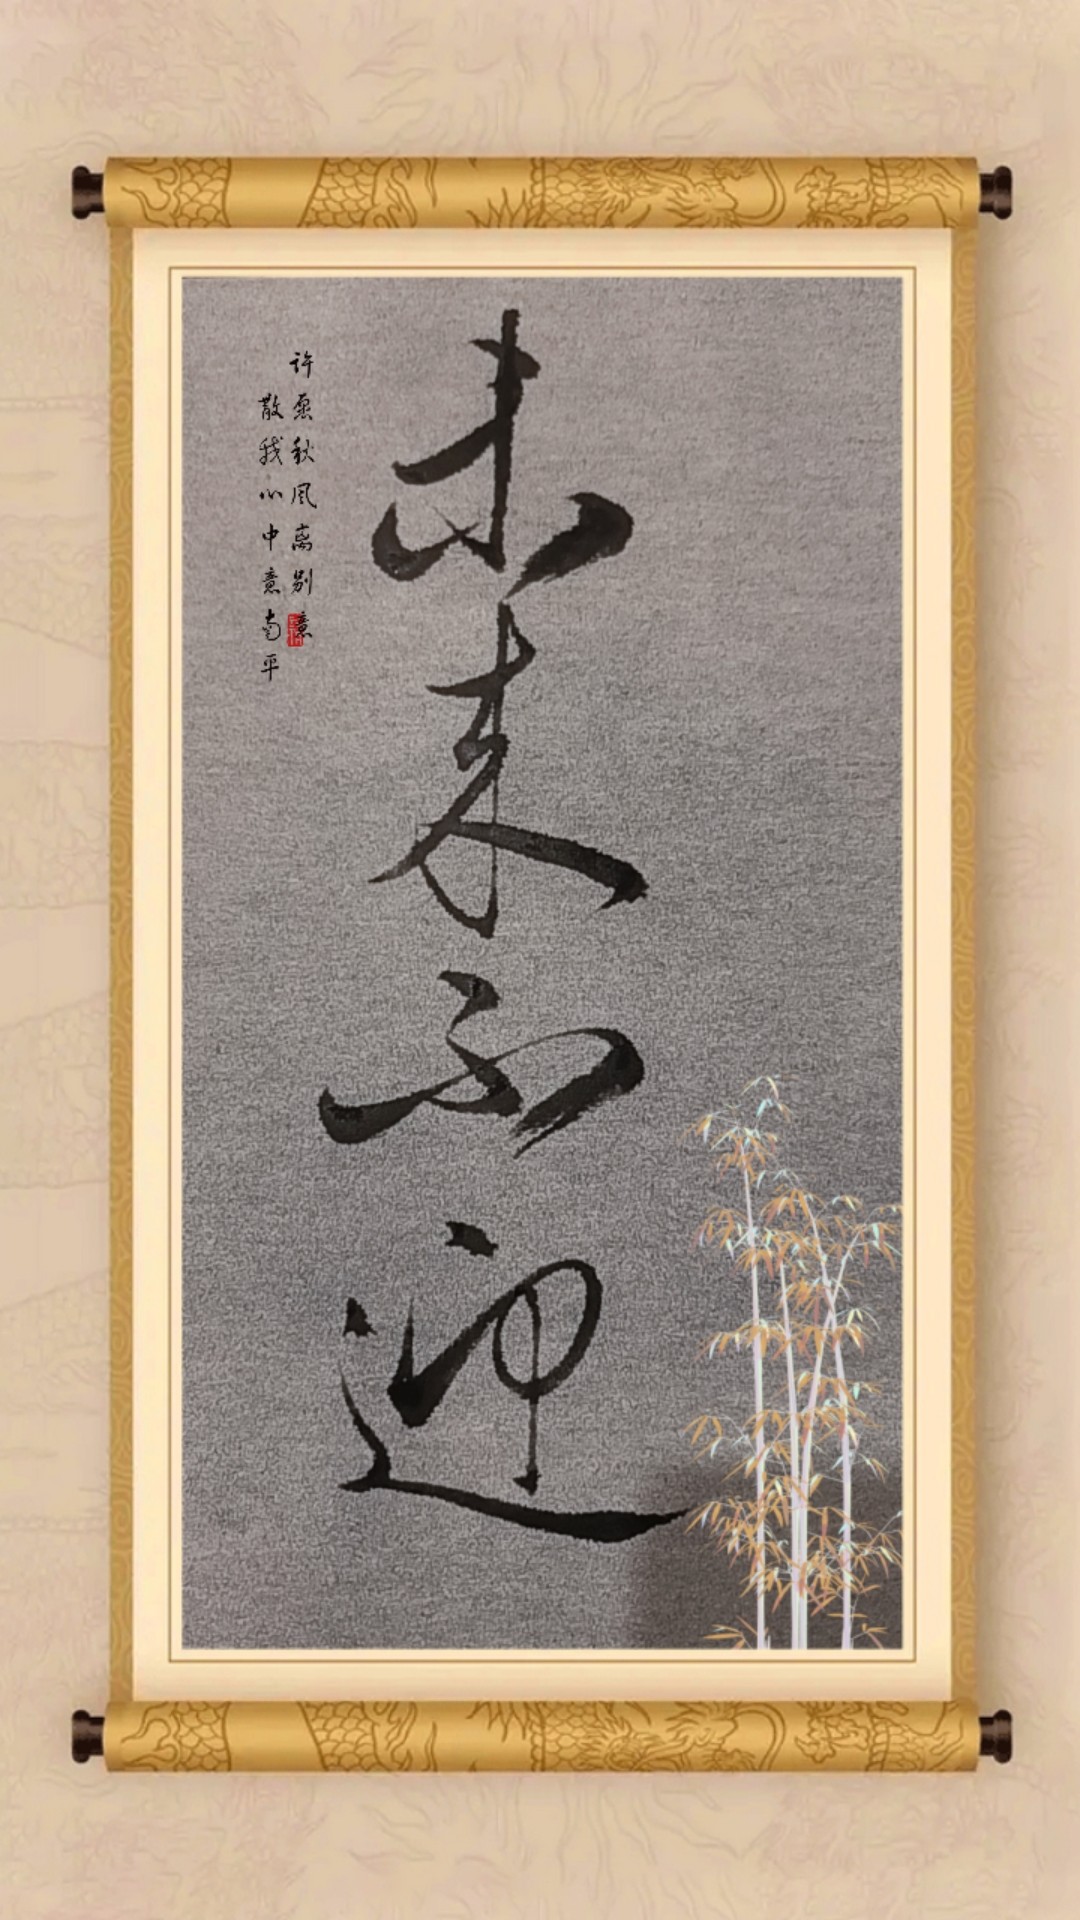 未来不迎
许愿秋风离别意
散我心中意南平